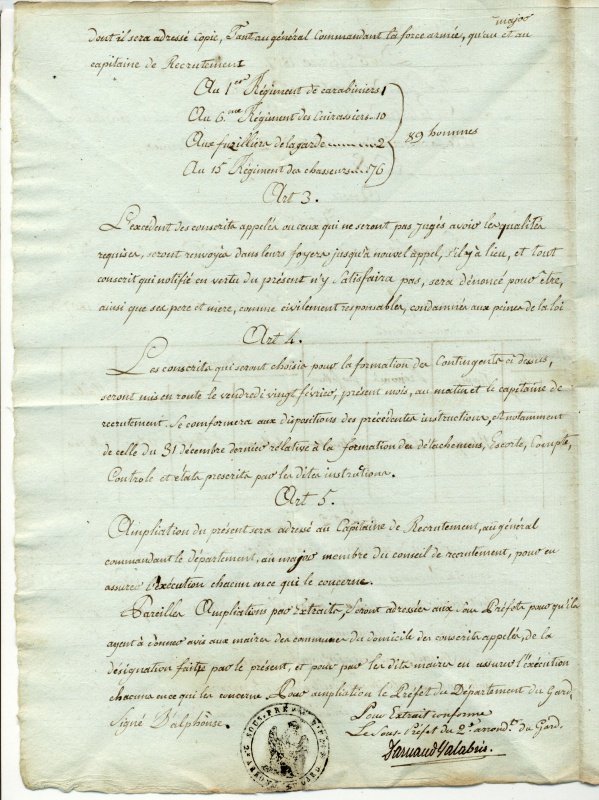 major
dont il sera adressé Copie, Tant au général Commandant la force armée, qu'au et au
capitaine de Recrutement
Au 1er Régiment de carabiniers 1
Au 6me Régiment des Cuirassiers 10
Aux fuzilliers de la garde 2
89 hommes
Au 15e Régiment des chasseurs 76
Art 3.
L'excédent des conscrits appelés ou ceux qui ne seront pas jugés avoir les qualités
requises, seront renvoyés dans leurs foyers jusqu'à nouvel appel, s'il y a lieu, et tout
conscrit qui notifié en vertu du présent n'y Satisfaira pas, sera dénoncé pour être,
ainsi que ses pere et mère, comme civilement responsables, condamnés aux peines de la loi
Art 4.
Les conscrits qui seront choisis pour la formation des Contingents ci dessus,
seront mis en route le vendredi vingt février, présent mois, au matin et le capitaine de
recrutement Se conformera aux dispositions des précédentes instructions, et notamment
de celle du 31 décembre dernier rélative à la formation des détachemens, Escorte, Compte,
Controle et états prescrits par les dites instructions.
Art 5.
Ampliation du présent sera adressé au Capitaine de Recrutement, au général
commandant le département, au major membre du conseil de recrutement, pour en
assurer l'exécution chacun en ce qui le concerne.
Pareilles Ampliations par Extraits, Seront adressées aux Préfets pour qu'ils
ayent à donner avis aux maires des communes du domicile des conscrits appelés, de la
désignation faite par le présent, et pour par les dits maires en assurer l'exécution
chacun en ce qui les concerne Pour ampliation le Préfet du Département du Gard
Signé D'alphonse.
Pour Extrait conforme
Le Sous Préfet du 2e arrondt du Gard.
SOUS-PRÉF